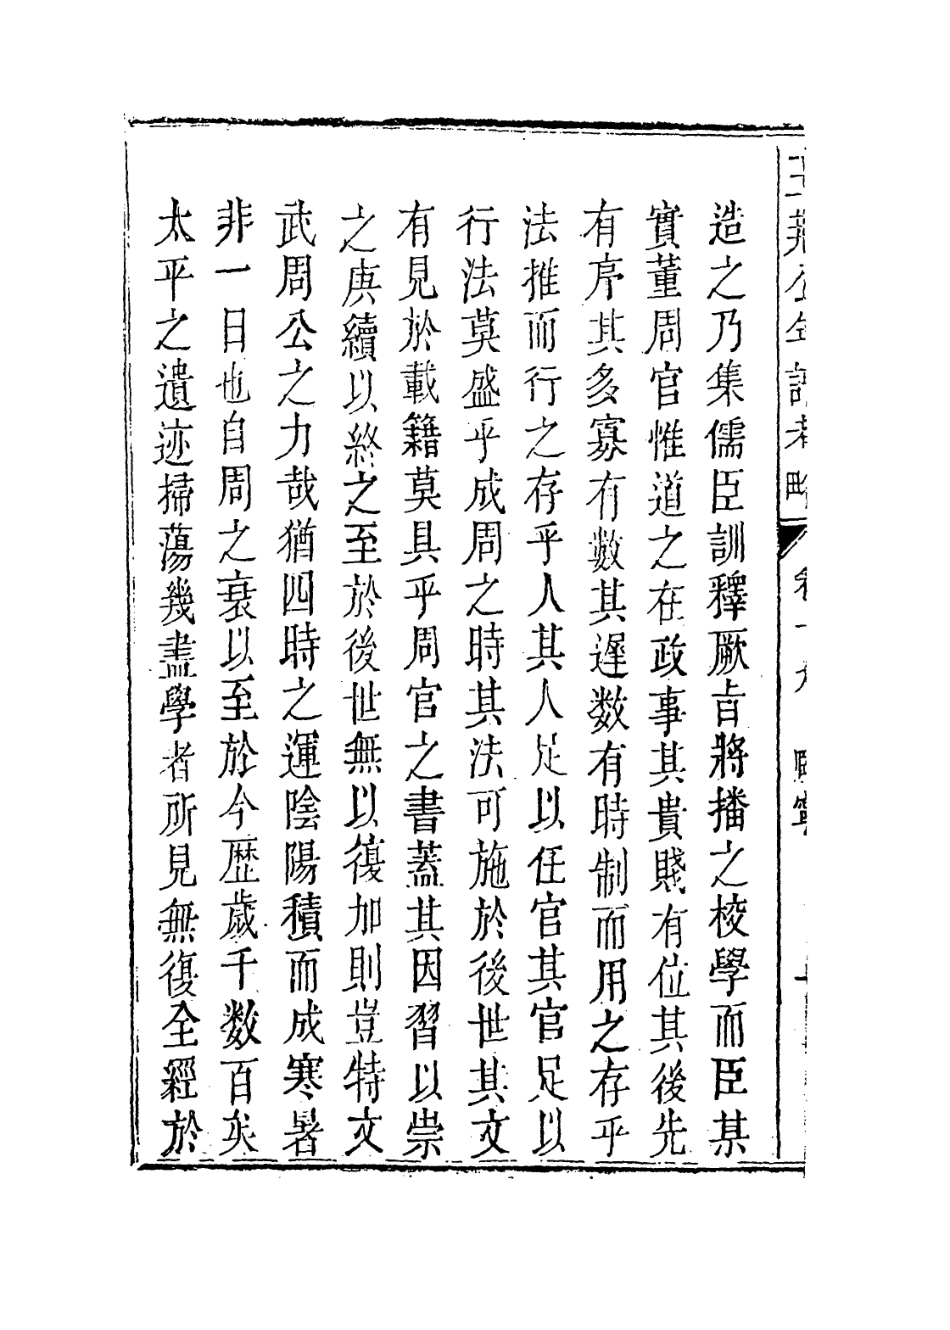 王荊公年譜考略 卷十九 熙寧
造之乃集儒臣訓釋厥旨將播之校學而臣某
實董周官惟道之在政事其貴賤有位其後先
有序其多寡有數其遲数有時制而用之存乎
法推而行之存乎人其人足以任官其官足以
行法莫盛乎成周之時其法可施於後世其文
有見於載籍莫具乎周官之書蓋其因習以崇
之庚續以終之至於後世無以復加則豈特文
武周公之力哉猶四時之運陰陽積而成寒暑
非一日也自周之衰以至於今歴歲千数百矣
太平之遺迹掃蕩幾盡學者所見無復全經於